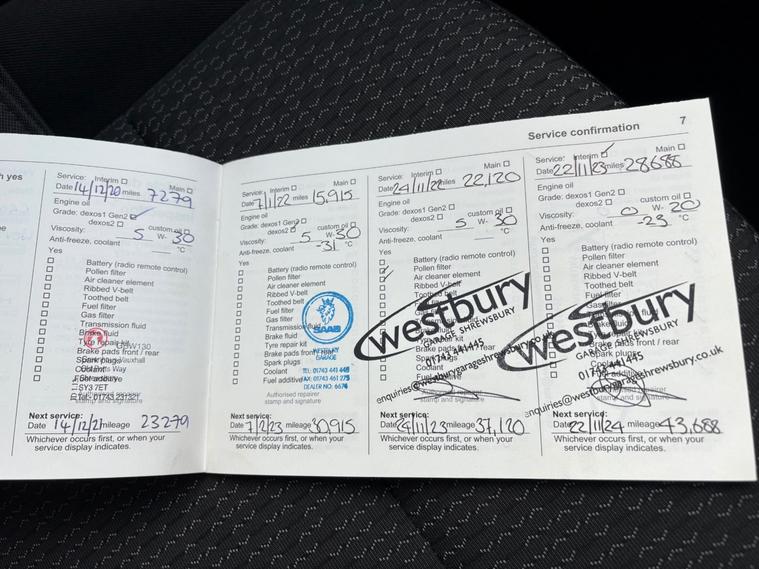 Service confirmation 7
h yes
e
Service: Interim Main
Date 14/12/20 miles 7279
Engine oil
Grade: dexos1 Gen2
dexos2 custom oil
Viscosity: 5 W- 30
Anti-freeze, coolant °C
Yes
Battery (radio remote control)
Pollen filter
Air cleaner element
Ribbed V-belt
Toothed belt
Fuel filter
Gas filter
Transmission fluid
Brake fluid
Tyre repair kit
Brake pads front / rear
Spark plugs
Coolant
Fuel additive
SY3 7ET
Tel: 01743 231321
stamp and signature
Next service:
Date 14/12/21 mileage 23279
Whichever occurs first, or when your
service display indicates.
Service: Interim Main
Date 7/1/22 miles 15,915
Engine oil
Grade: dexos1 Gen2
dexos2 custom oil
Viscosity: 5 W- 30
Anti-freeze, coolant -31 °C
Yes
Battery (radio remote control)
Pollen filter
Air cleaner element
Ribbed V-belt
Toothed belt
Fuel filter
Gas filter
Transmission fluid
Brake fluid
Tyre repair kit
Brake pads front / rear
Spark plugs
Coolant
Fuel additive
SAAB
WESTBURY
GARAGE
TEL: 01743 441 445
FAX: 01743 461 275
Authorised repairer
stamp and signature
Next service:
Date 7/2/23 mileage 30,915
Whichever occurs first, or when your
service display indicates.
Service: Interim Main
Date 24/11/22 miles 22,120
Engine oil
Grade: dexos1 Gen2
dexos2 custom oil
Viscosity: 5 W- 30
Anti-freeze, coolant °C
Yes
Battery (radio remote control)
Pollen filter
Air cleaner element
Ribbed V-belt
Toothed belt
westbury
GARAGE SHREWSBURY
01743 441445
Brake pads front / rear
Spark plugs
Coolant
Fuel additive
enquiries@westburygarageshrewsbury.co.uk
stamp and signature
Next service:
Date 24/11/23 mileage 37,120
Whichever occurs first, or when your
service display indicates.
Service: Interim Main
Date 22/11/23 miles 28688
Engine oil
Grade: dexos1 Gen2
dexos2 custom oil
Viscosity: 0 W- 20
Anti-freeze, coolant -23 °C
Yes
Battery (radio remote control)
Pollen filter
Air cleaner element
Ribbed V-belt
Toothed belt
Fuel filter
westbury
GARAGE SHREWSBURY
01743 441445
Brake fluid
Spark plugs
Coolant
enquiries@westburygarageshrewsbury.co.uk
stamp and signature
Next service:
Date 22/11/24 mileage 43,688
Whichever occurs first, or when your
service display indicates.